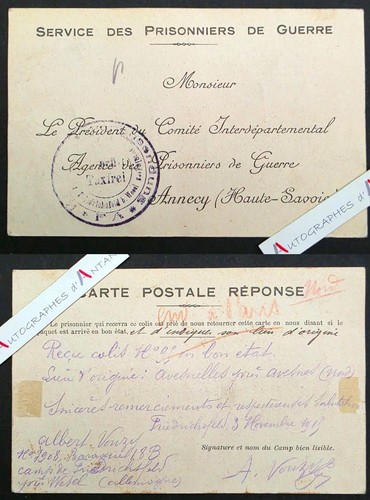 SERVICE DES PRISONNIERS DE GUERRE
Monsieur
Le Président du Comité Interdépartemental
Agence des Prisonniers de Guerre
Annecy (Haute-Savoie)
Taxfrei
AUTOGRAPHES d'A
AUTOGRAPHES d'ANTAN
CARTE POSTALE RÉPONSE
Nord
à Paris
Le prisonnier qui recevra ce colis est prié de nous retourner cette carte en nous disant si le
paquet est arrivé en bon état. et d'indiquer son lieu d'origine
Reçu colis N° en bon état.
Lieu d'origine: Avesnelles près Avesnes (Nord)
Sincères remerciements et respectueuses salutations
Friedrichsfeld, 3 Novembre 1915
Signature et nom du Camp bien lisible.
Albert Vouzy
N° 1908, Baraque 48B
camp de Friedrichsfeld
près Wesel (Allemagne)
A. Vouzy
AUTOGRAPHES d'A